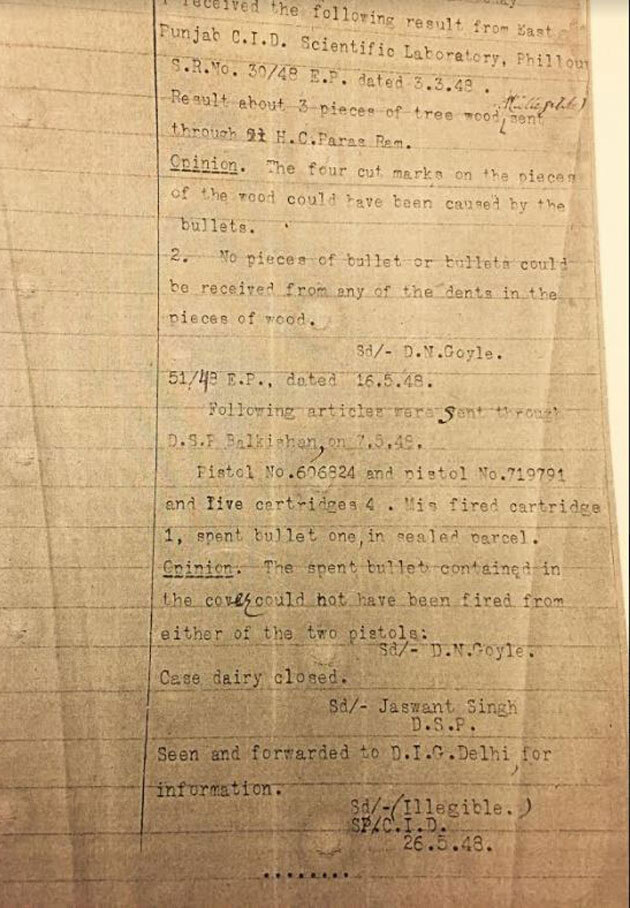 I received the following result from East
Punjab C.I.D. Scientific Laboratory, Phillour
S.R.No. 30/48 E.P. dated 3.3.48 .
Result about 3 pieces of tree wood, sent
through H.C.Paras Ram.
Opinion. The four cut marks on the pieces
of the wood could have been caused by the
bullets.
2. No pieces of bullet or bullets could
be received from any of the dents in the
pieces of wood.
Sd/- D.N.Goyle.
51/48 E.P., dated 16.5.48.
Following articles were sent through
D.S.P Balkishan, on 7.5.48.
Pistol No.606824 and pistol No.719791
and live cartridges 4 . Mis fired cartridge
1, spent bullet one, in sealed parcel.
Opinion. The spent bullet contained in
the cover could not have been fired from
either of the two pistols:
Sd/- D.N.Goyle.
Case dairy closed.
Sd/- Jaswant Singh
D.S.P.
Seen and forwarded to D.I.G.Delhi, for
information.
Sd/-(Illegible.)
SP/C.I.D.
26.5.48.
........